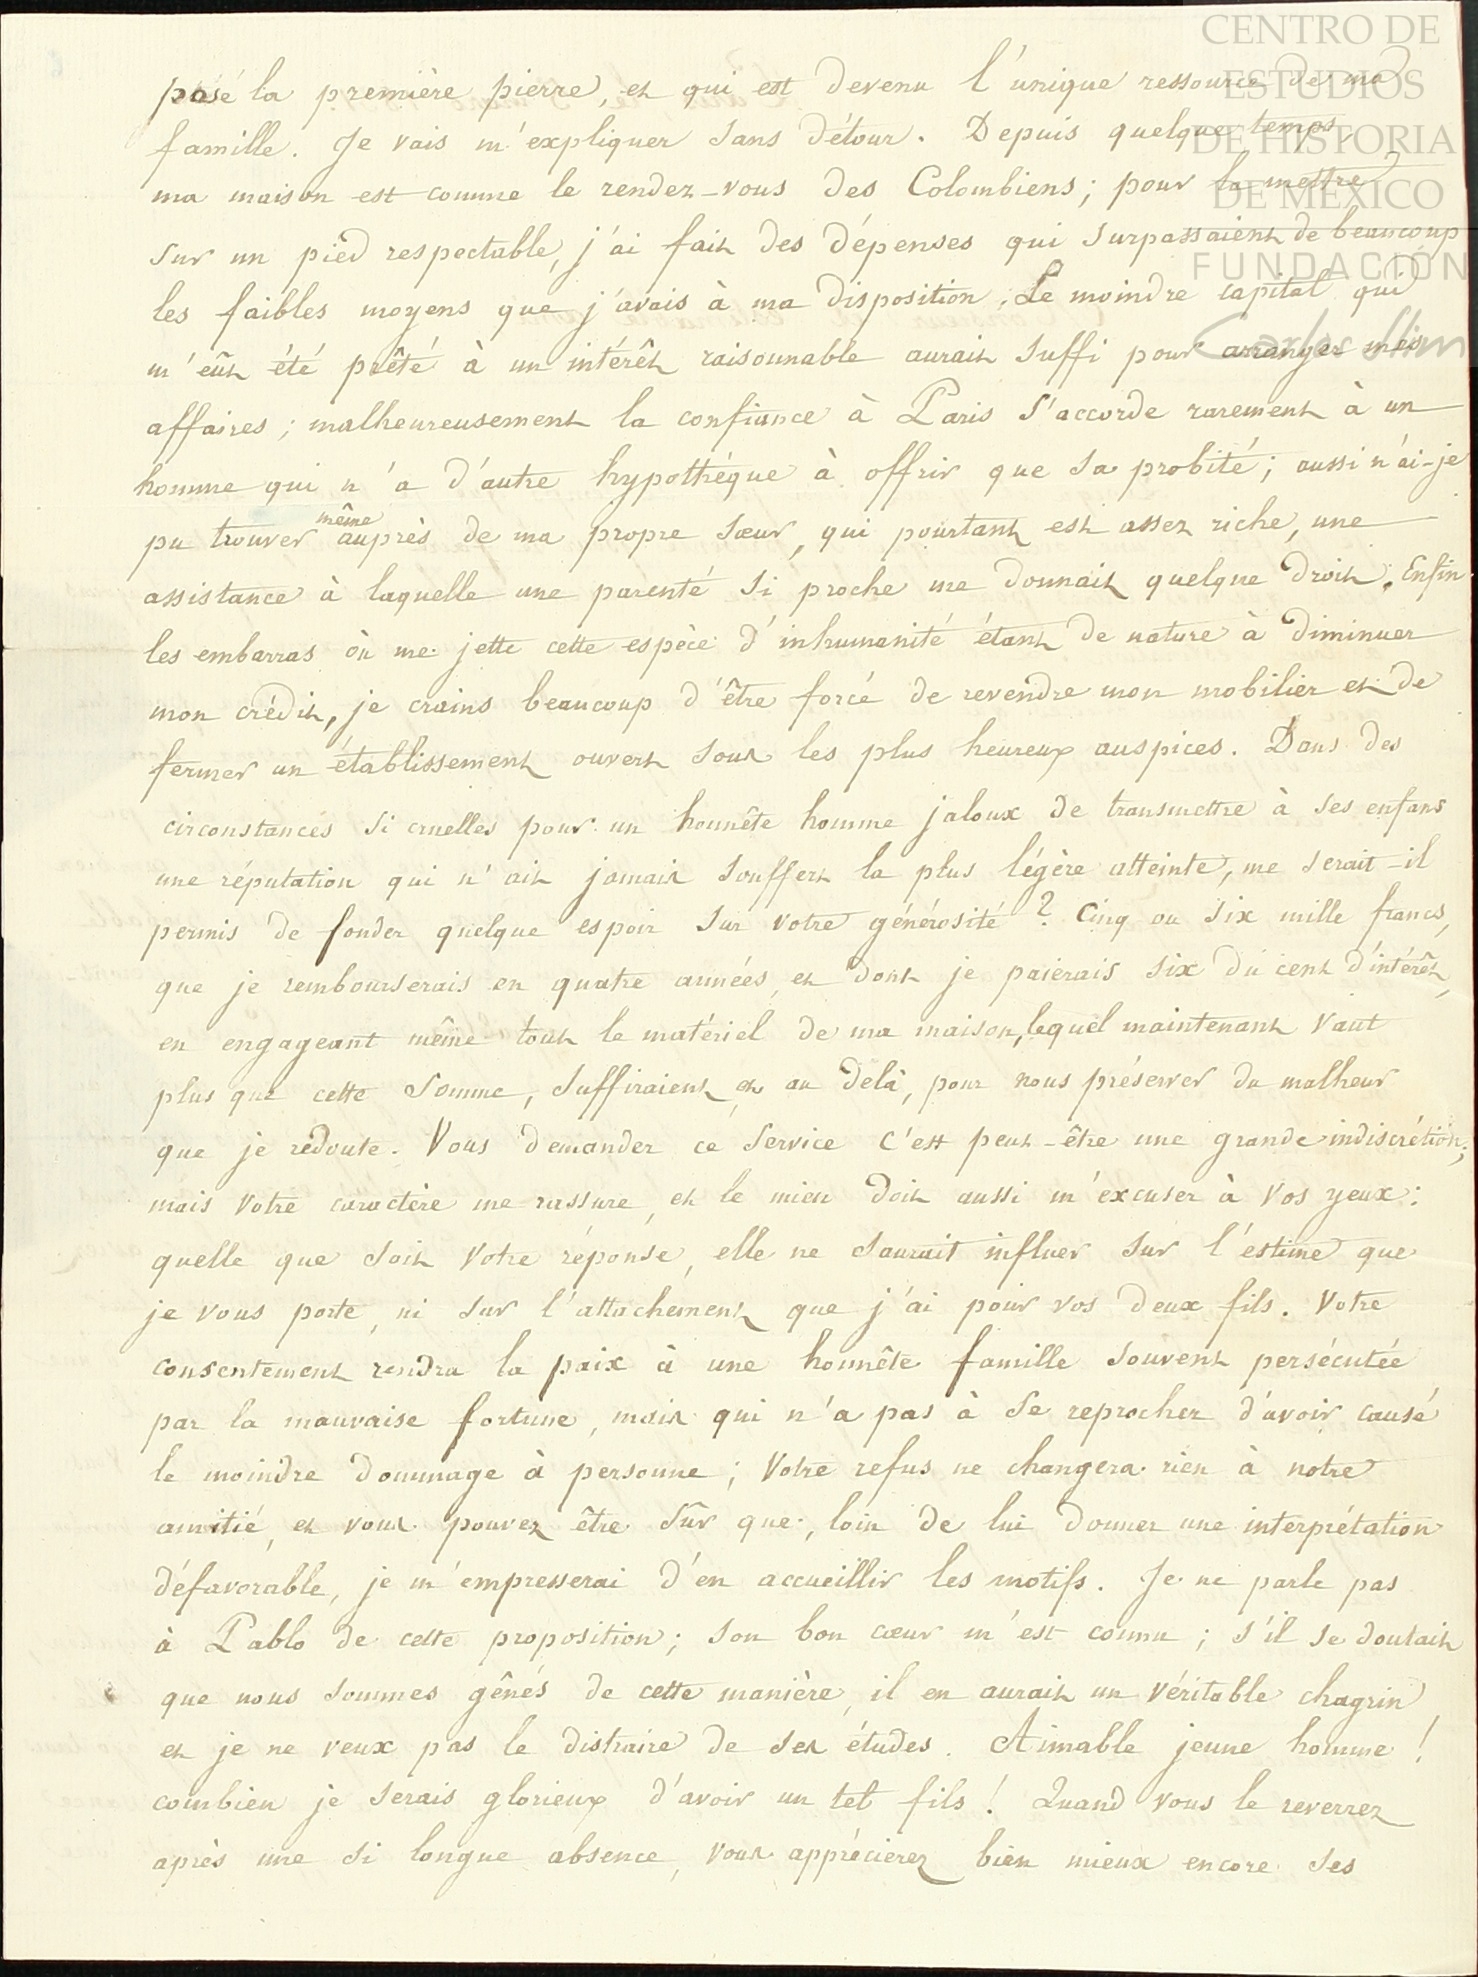 CENTRO DE
ESTUDIOS
DE HISTORIA
DE MÉXICO
FUNDACIÓN
Carlos Slim
posé la première pierre, et qui est devenu l'unique ressource de ma
famille. Je vais m'expliquer sans détour. Depuis quelque temps,
ma maison est comme le rendez-vous des Colombiens; pour la mettre
sur un pied respectable, j'ai fait des dépenses qui surpassaient de beaucoup
les faibles moyens que j'avais à ma disposition. Le moindre capital qui
m'eût été prêté à un intérêt raisonnable aurait suffi pour arranger mes
affaires; malheureusement la confiance à Paris s'accorde rarement à un
homme qui n'a d'autre hypothéque à offrir que sa probité; aussi n'ai-je
pu trouver même auprès de ma propre sœur, qui pourtant est assez riche, une
assistance à laquelle une parenté si proche me donnait quelque droit. Enfin
les embarras où me jette cette espèce d'inhumanité étant de nature à diminuer
mon crédit, je crains beaucoup d'être forcé de revendre mon mobilier et de
fermer un établissement ouvert sous les plus heureux auspices. Dans des
circonstances si cruelles pour un honnête homme jaloux de transmettre à ses enfans
une réputation qui n'ait jamais souffert la plus légère atteinte, me serait-il
permis de fonder quelque espoir sur votre générosité? Cinq ou six mille francs,
que je rembourserais en quatre années, et dont je paierais six du cent d'intérêt,
en engageant même tout le matériel de ma maison, lequel maintenant vaut
plus que cette somme, suffiraient et au delà, pour nous préserver du malheur
que je redoute. Vous demander ce service c'est peut-être une grande indiscrétion;
mais votre caractère me rassure, et le mien doit aussi m'excuser à vos yeux:
quelle que soit votre réponse, elle ne saurait influer sur l'estime que
je vous porte, ni sur l'attachement que j'ai pour vos deux fils. Votre
consentement rendra la paix à une honnête famille souvent persécutée
par la mauvaise fortune, mais qui n'a pas à se reprocher d'avoir causé
le moindre dommage à personne; Votre refus ne changera rien à notre
amitié, et vous pouvez être sûr que, loin de lui donner une interprétation
défavorable, je m'empresserai d'en accueillir les motifs. Je ne parle pas
à Pablo de cette proposition; son bon cœur m'est connu; s'il se doutait
que nous sommes gênés de cette manière, il en aurait un véritable chagrin
et je ne veux pas le distraire de ses études. Aimable jeune homme!
combien je serais glorieux d'avoir un tel fils! Quand vous le reverrez
après une si longue absence, vous apprécierez bien mieux encore ses